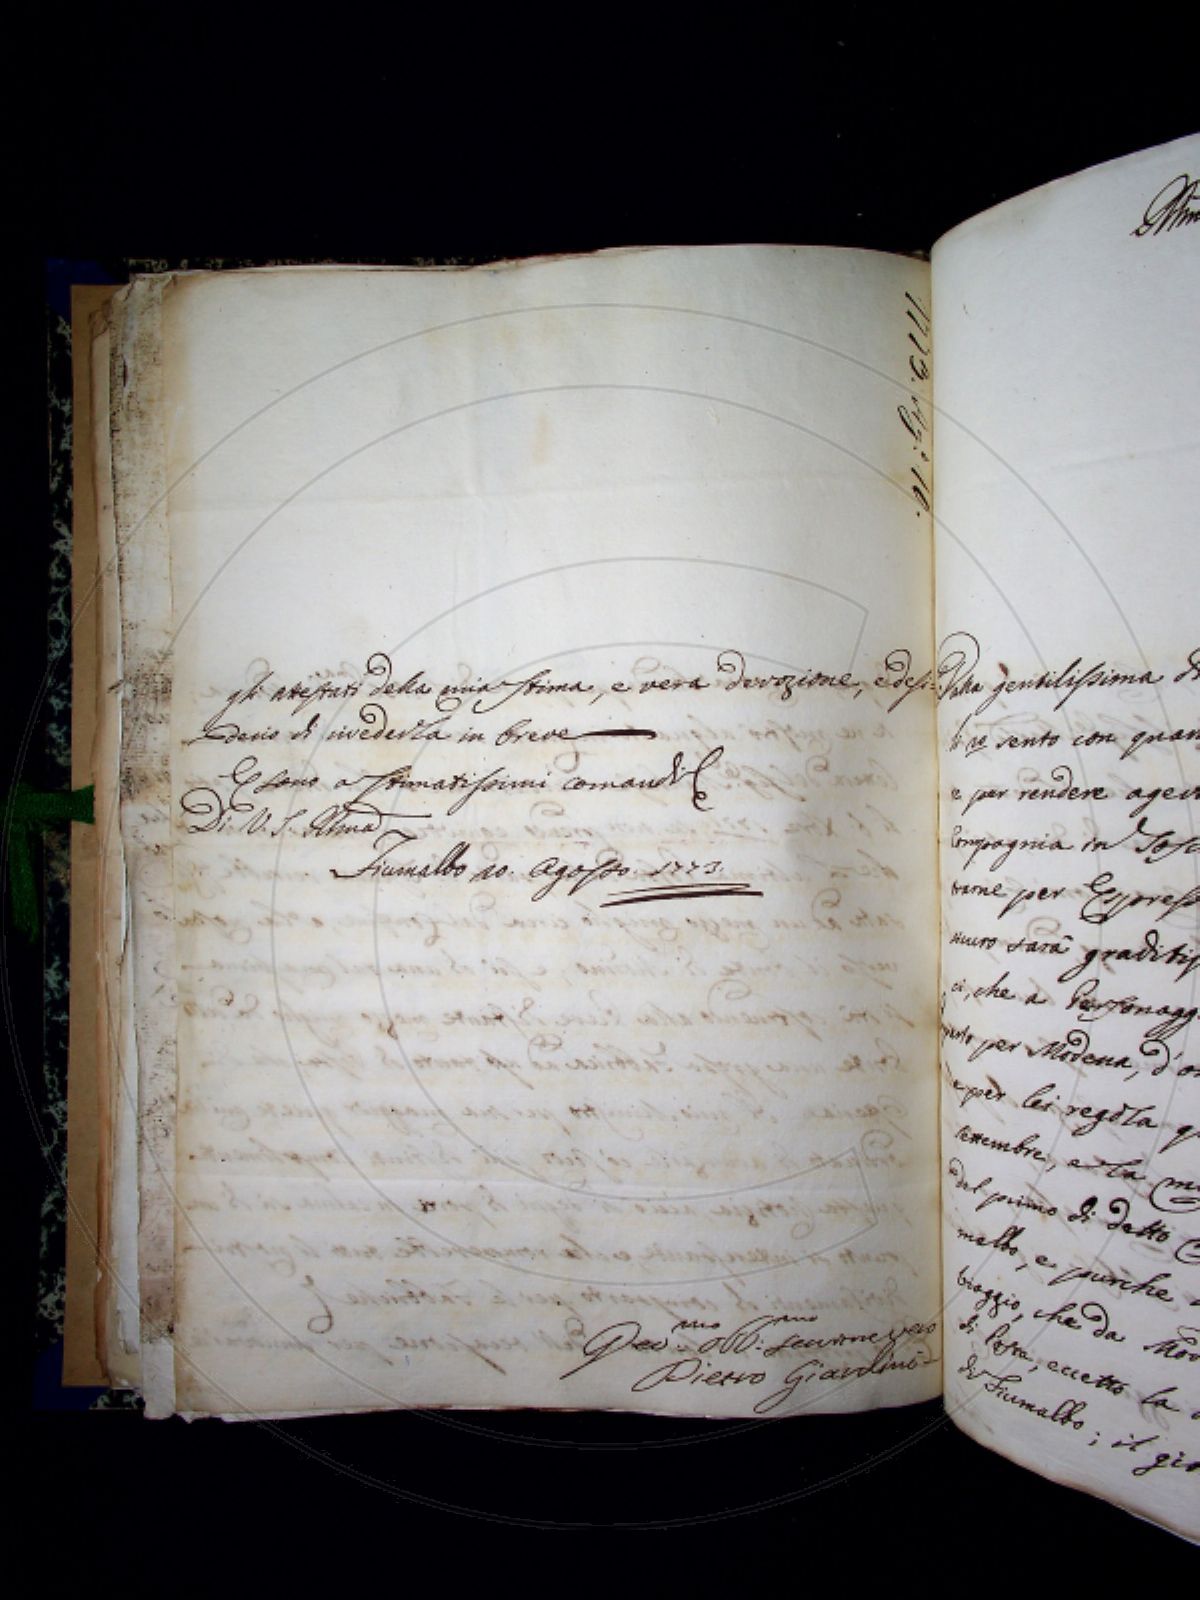 1773. Ag.º 10.
gli attestati della mia stima, e vera devozione, e desi-
derio di rivederla in breve
E sono a stimatissimi comandi
Di V. S. Illma
Fiumalbo 10. Agosto. 1773.
Devmo Obb:mo servitore vero
Pietro Giardini
Illm
Dalla gentilissima di
sento con quan
e per rendere agev
Compagnia in Tosc
trarne per Espress
sarà graditis
ci, che a Personagg
per Modena, d'o
e per lei regola q
settembre, e la m
del primo di detto
malbo, e purche
viaggio, che da Mod
di Pesa, eccetto la
di Fiumalbo; il gio